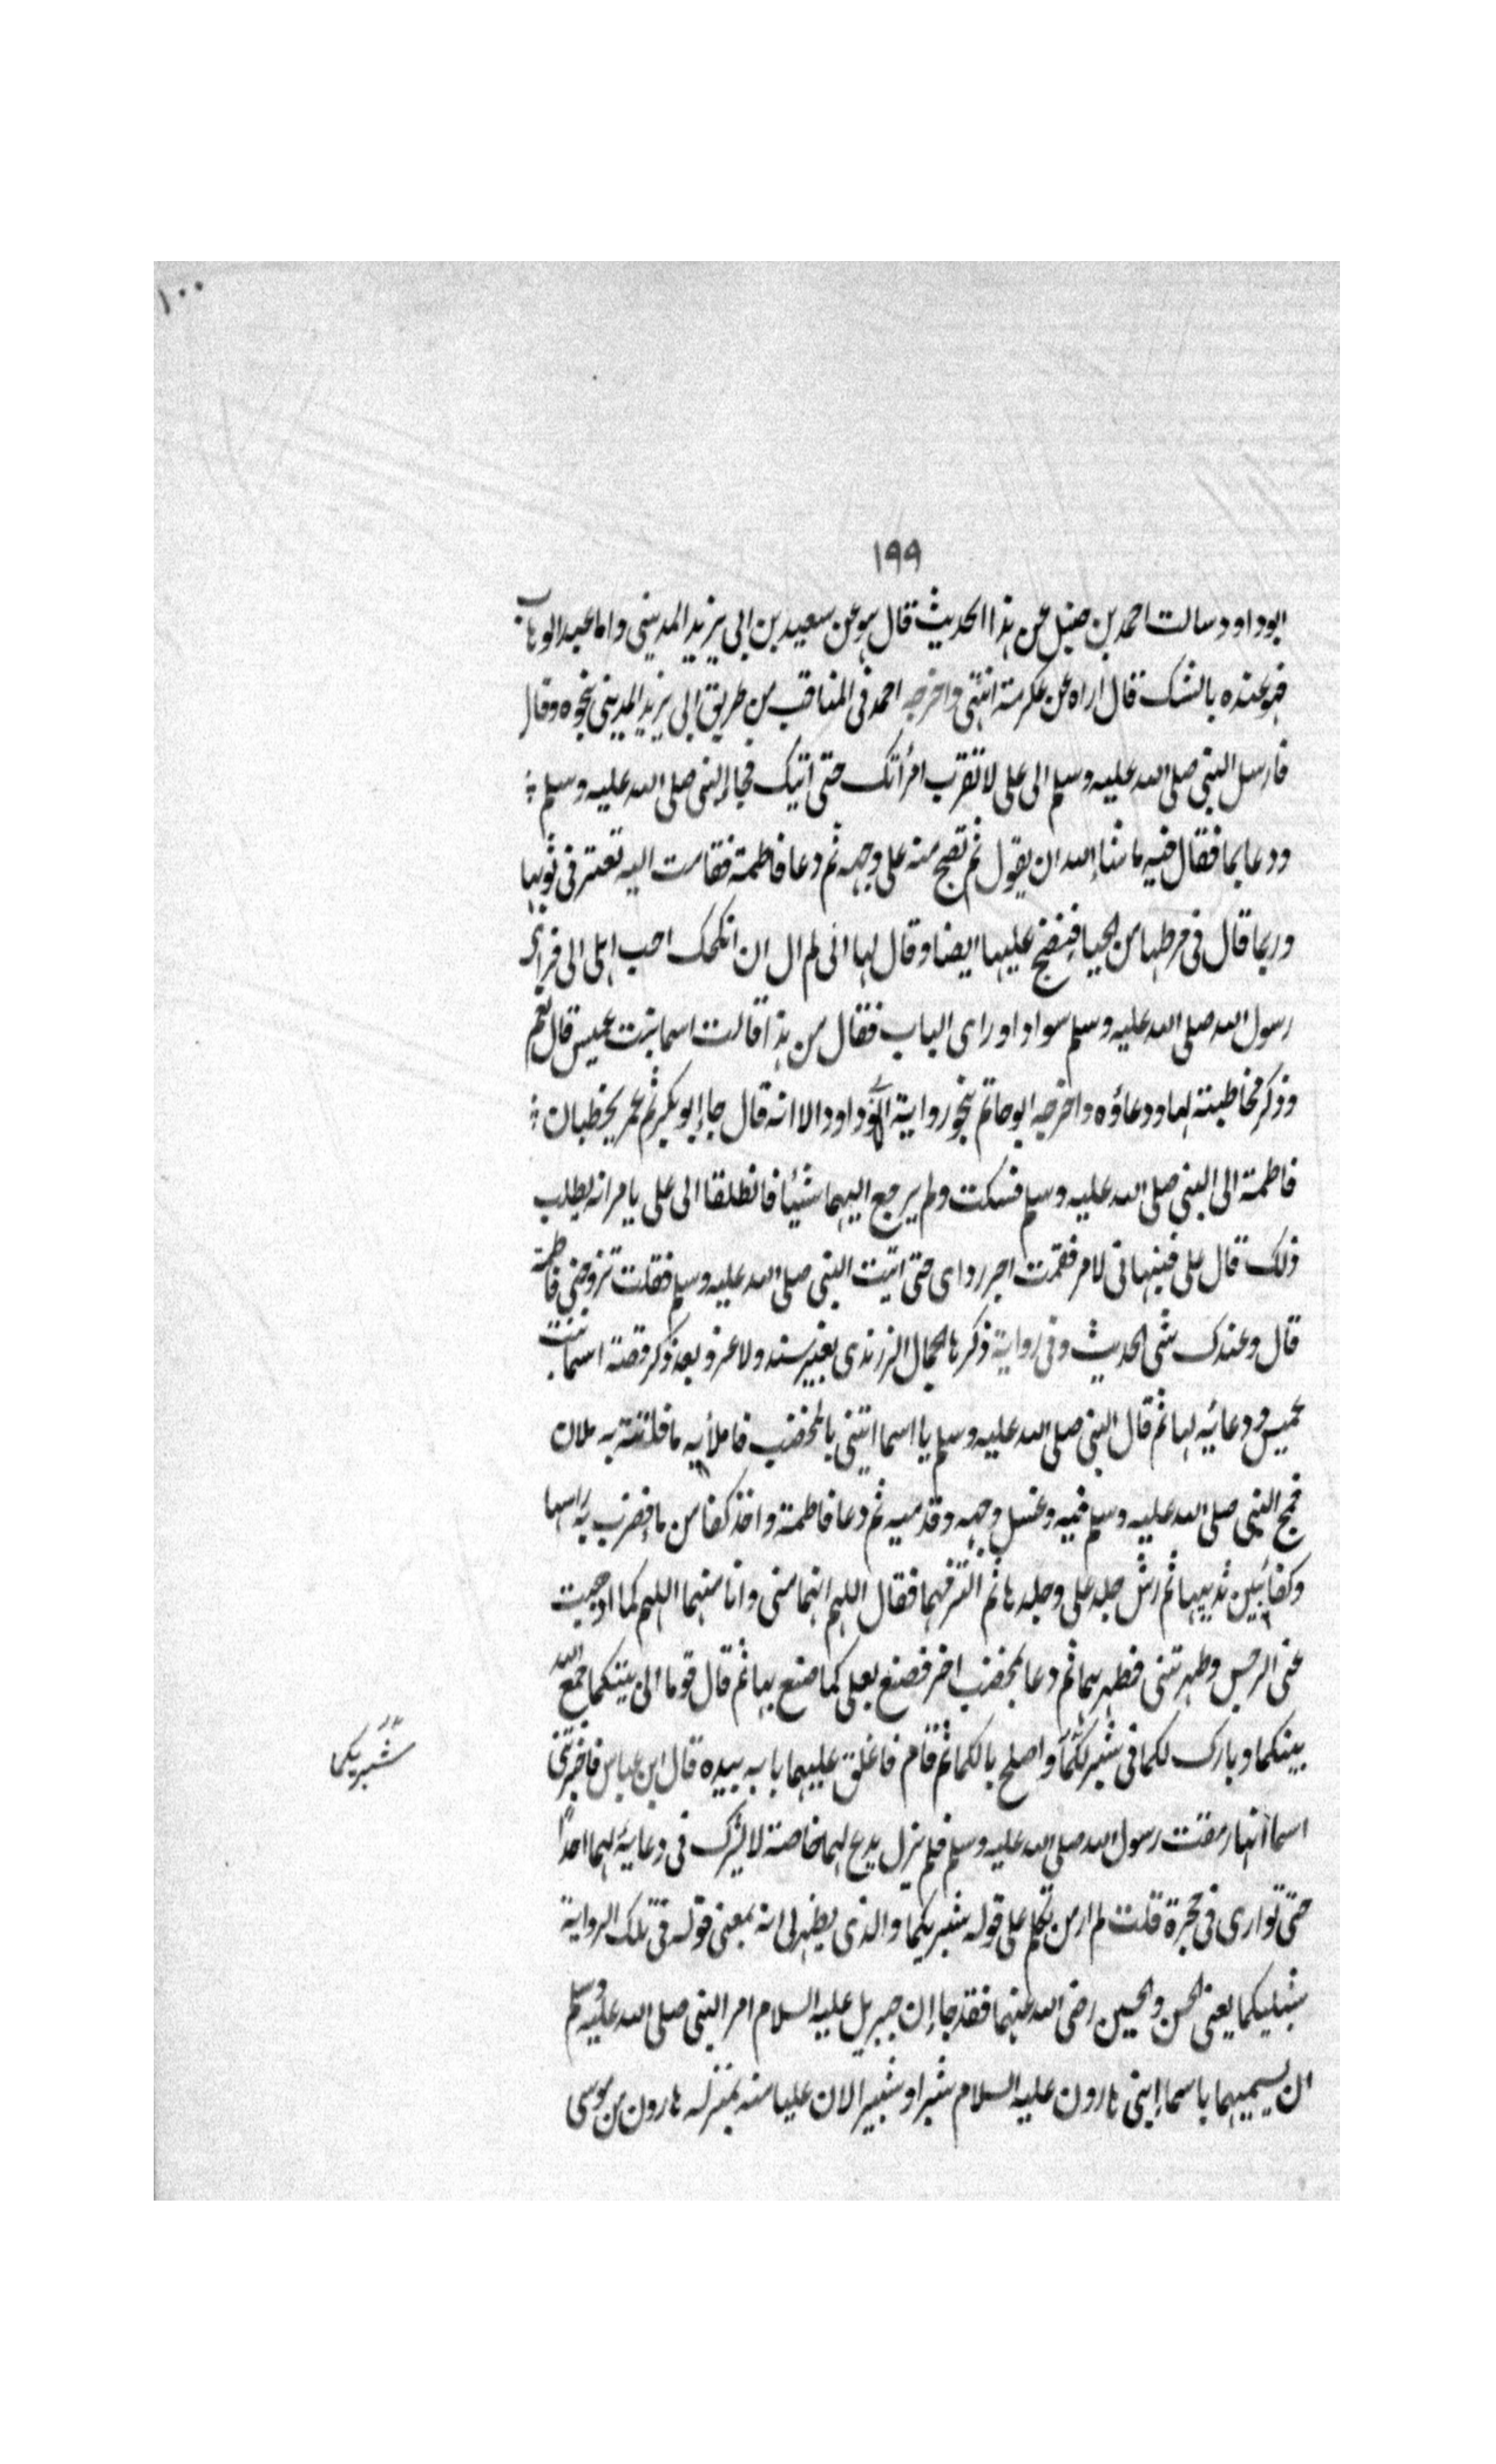 ١٠٠
١٩٩
ابوداود سالت احمد بن حنبل عن هذا الحديث قال هو عن سعيد بن ابي يزيد المديني واما عبد الوهاب
فهو عنده بالشك قال اراه عن عكرمة انتهى واخرجه احمد في المناقب من طريق ابي يزيد المديني نحوه وقال
فارسل النبي صلى الله عليه وسلم الى علي لا تقرب امرأتك حتى اتيك فجاء النبي صلى الله عليه وسلم
ودعا بما فقال فيه ماشاء الله ان يقول ثم نضح منه على وجهه ثم دعا فاطمة فقامت اليه تعثر في ثوبها
وربما قال في مرطها من الحياء فنضح عليها ايضا وقال لها اني لم ال ان انكحك احب اهلي الي فرأى
رسول الله صلى الله عليه وسلم سوادا ورای الباب فقال من هذا قالت اسما بنت عميس قال نعم
وذكر مخاطبته لها ودعاؤه واخرجه ابو حاتم نحو رواية ابوداود الا انه قال جاء ابو بكر ثم عمر يخطبان
فاطمة الى النبي صلى الله عليه وسلم فسكت ولم يرجع اليهما شيئا فانطلقا الى علي يامرانه يطلب
ذلك قال علي فنبهاني لامر فقمت اجر ردای حتى اتيت النبي صلى الله عليه وسلم فقلت تزوجني فاطمة
قال وعندك شي الحديث وفي رواية ذكرها الجمال الزرندي بغير سند ولا عزو بعد ذكر قصة اسما بنت
عميس ودعائيه لها ثم قال النبي صلى الله عليه وسلم يا اسما ائتني بالمخضب فاملأيه ما فاتته به ملان
فمج النبي صلى الله عليه وسلم فيه وغسل وجهه وقدميه ثم دعا فاطمة واخذ كفا من ماء فضرب به راسها
وكفا بين ثدييها ثم رش جلد علي وجلدها ثم التزمهما فقال اللهم انهما مني وانا منهما اللهم كما اذهبت
عني الرجس وطهرتني فطهرهما ثم دعا بمخضب اخر فصنع بعلي كما صنع بها ثم قال قوما الى بيتكما جمع الله
بينكما وبارك لكما في شبركما واصلح بالكما ثم قام فاغلق عليهما بابه بيده قال ابن عباس فاخبرتني
شبريكما
اسما انها رمقت رسول الله صلى الله عليه وسلم فلم يزل يدع لهما خاصة لا يشرك في دعائيه لهما احدا
حتى توارى في حجرة قلت لم ار من تكلم على قوله شبريكما والذي يظهر لي انه بمعنى قوله في تلك الرواية
شبليكما يعني الحسن والحسين رضي الله عنهما فقد جاء ان جبريل عليه السلام امر النبي صلى الله عليه وسلم
ان يسميهما باسماء ابني هارون عليه السلام شبرا وشبيرا لان عليا منه بمنزله هارون من موسى